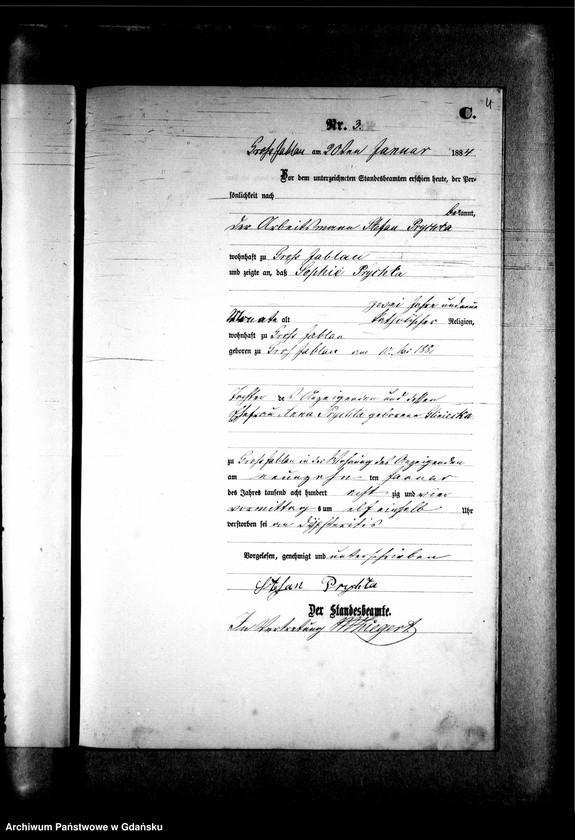 4
C.
Nr. 3.
Gross Jablau am 20ten Januar 1884
Vor dem unterzeichneten Standesbeamten erschien heute, der Per-
sönlichkeit nach
bekannt,
der Arbeitsmann Stefan Prychta
wohnhaft zu Gross Jablau
und zeigte an, daß Sophie Prychta
zwei Jahre und neun
Monate alt katholischer Religion,
wohnhaft zu Gross Jablau
geboren zu Gross Jablau am Mai 1881
Tochter des Anzeigenden und dessen
Ehefrau Anna Prychta geborene
zu Gross Jablau in der Wohnung des Anzeigenden
am neunzehn ten Januar
des Jahres tausend acht hundert acht zig und vier
vormittags um elf einhalb Uhr
verstorben sei an Diphteritis
Vorgelesen, genehmigt und unterschrieben
Stefan Prychta
Der Standesbeamte.
In Vertretung
Archiwum Państwowe w Gdańsku